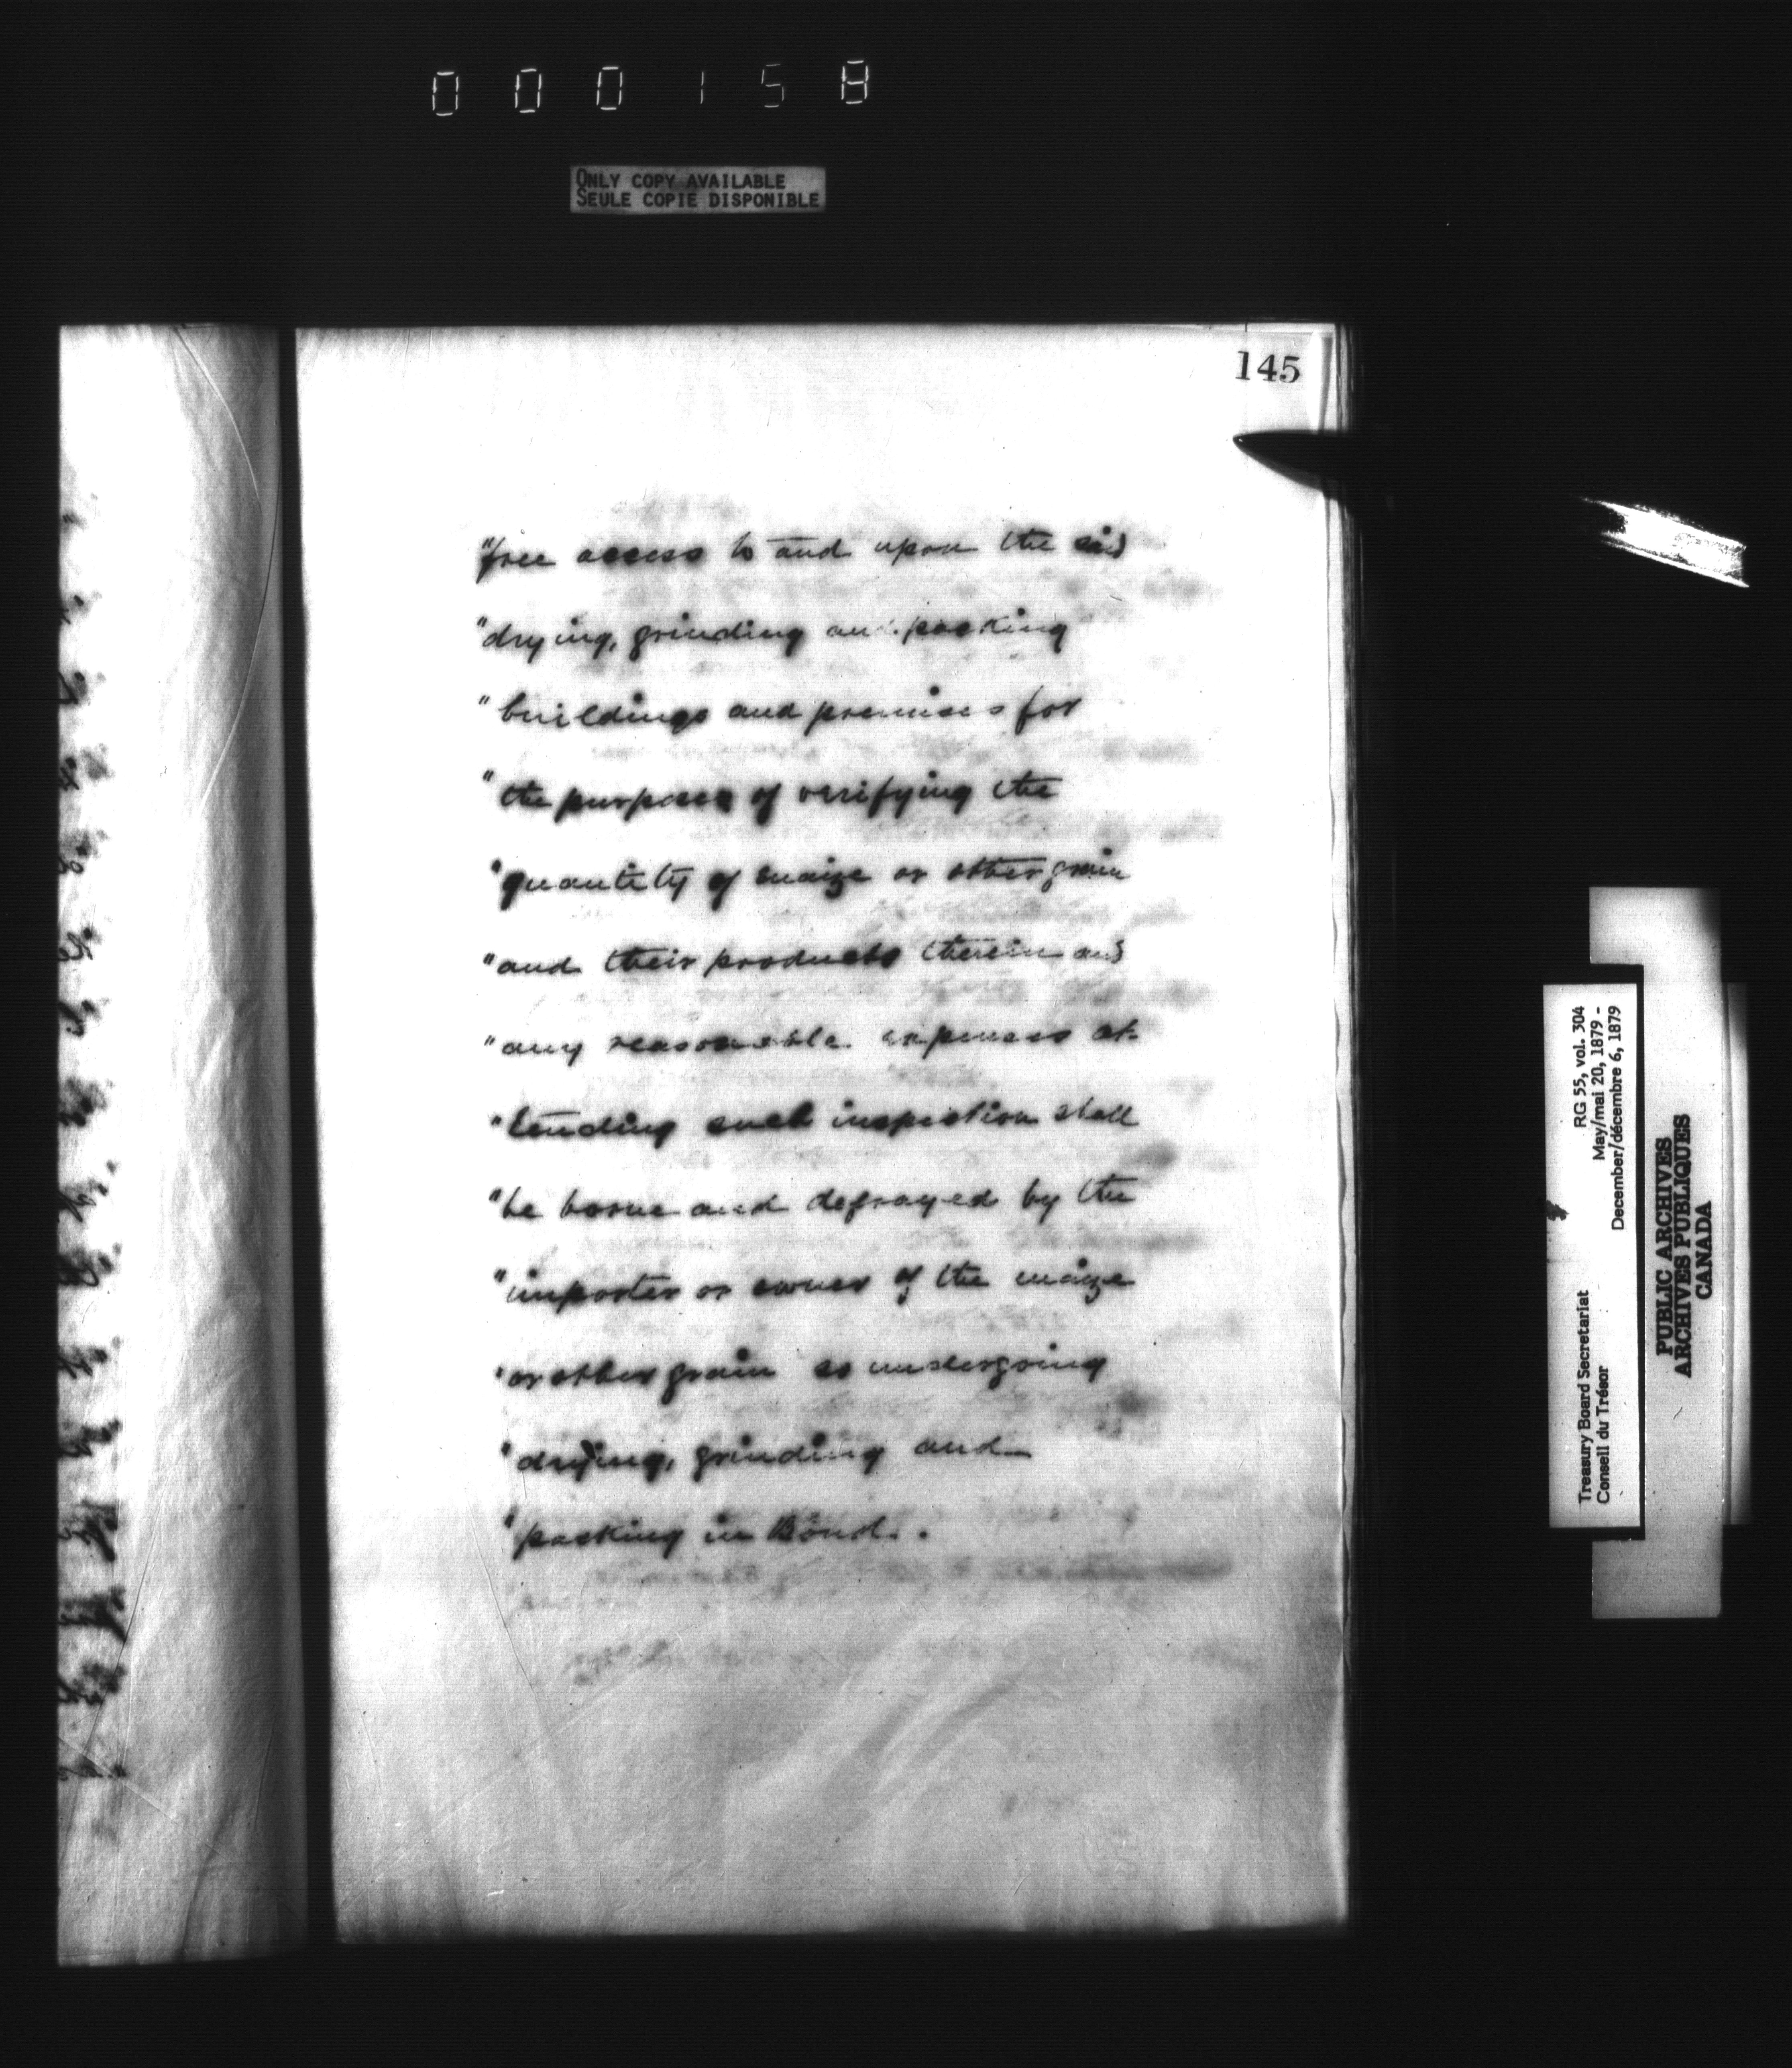 000158
ONLY COPY AVAILABLE
SEULE COPIE DISPONIBLE
145
"free access to and upon the said
"drying, grinding and packing
"buildings and premises for
"the purposes of verifying the
"quantity of maize or other grain
"and their products therein and
"any reasonable expenses at-
"tending such inspection shall
"be borne and defrayed by the
"importer or owner of the maize
"or other grain so undergoing
"drying, grinding and
"packing in Bond.
Treasury Board Secretariat RG 55, vol. 304
Conseil du Trésor May/mai 20, 1879 -
December/décembre 6, 1879
PUBLIC ARCHIVES
ARCHIVES PUBLIQUES
CANADA